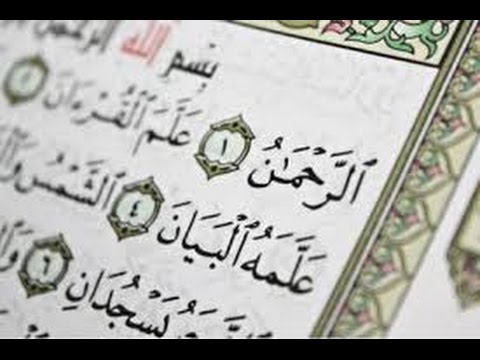 بِسْمِ ٱللَّهِ ٱلرَّحْمَٰنِ
ٱلرَّحْمَٰنُ ١ عَلَّمَ ٱلْقُرْءَانَ ٢
عَلَّمَهُ ٱلْبَيَانَ ٤ ٱلشَّمْسُ وَٱلْ
يَسْجُدَانِ ٦ وَٱل